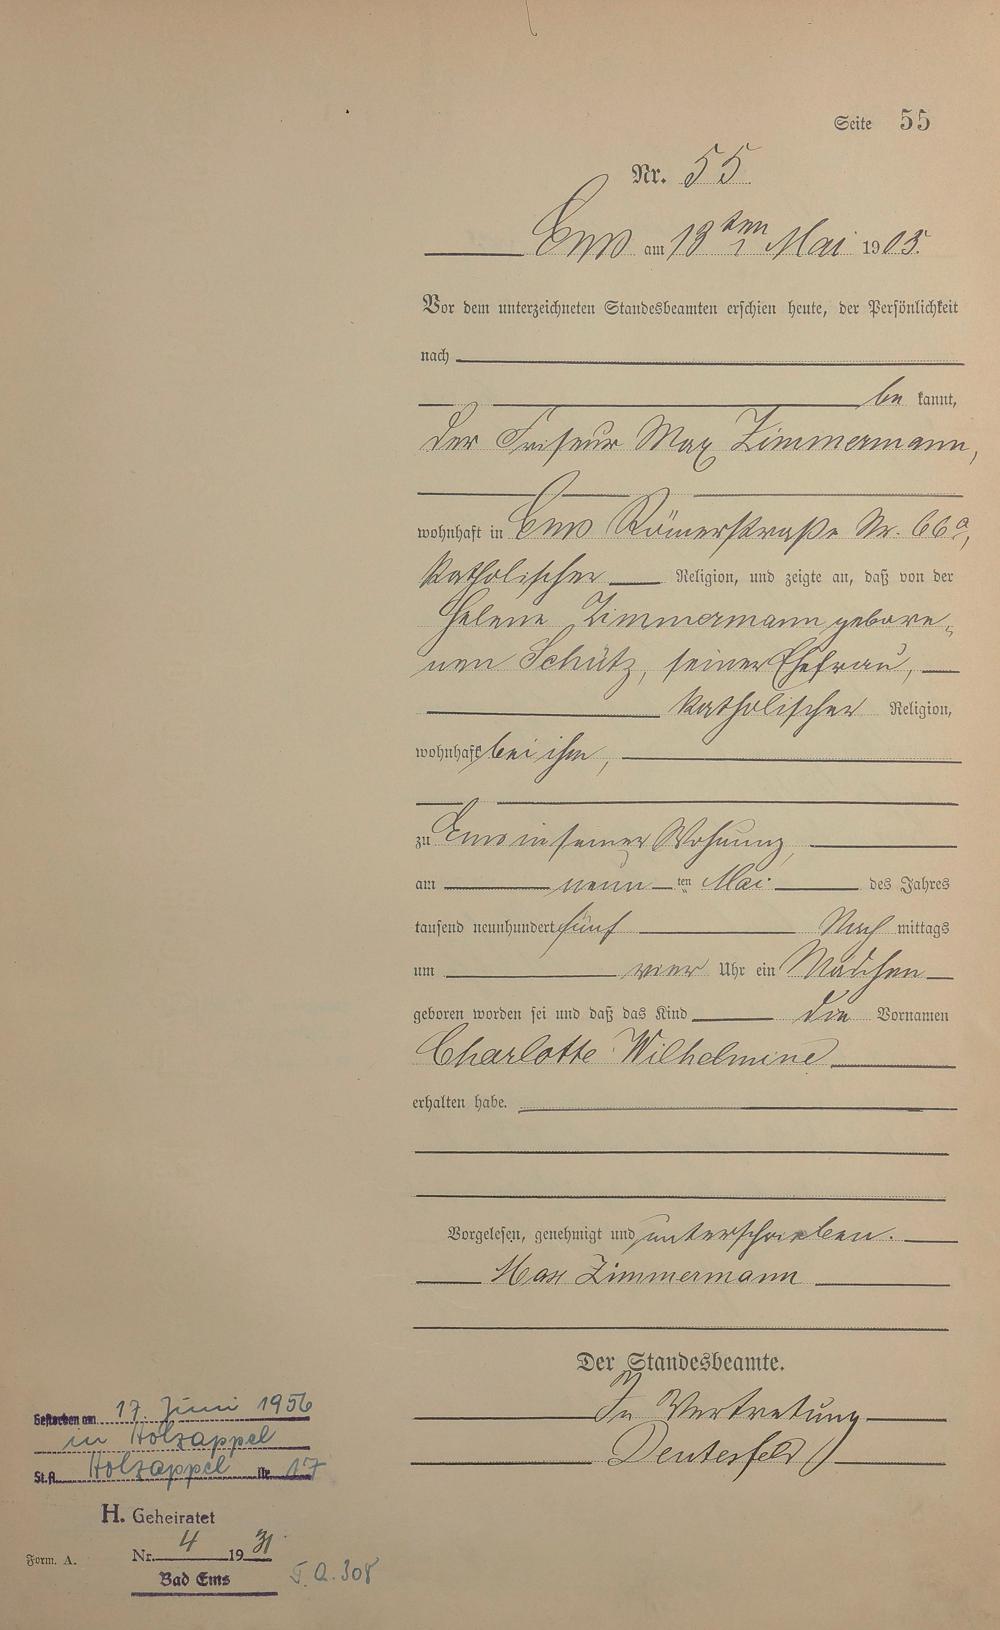 Seite 55
Nr. 55
Ems am 13ten Mai 1905.
Vor dem unterzeichneten Standesbeamten erschien heute, der Persönlichkeit
nach
be kannt,
der Friseur Max Zimmermann,
wohnhaft in Ems Römerstraße Nr. 66a,
katholischer Religion, und zeigte an, daß von der
Helene Zimmermann gebore-
nen Schütz, seiner Ehefrau,
katholischer Religion,
wohnhaft bei ihm,
zu Ems in seiner Wohnung,
am neun ten Mai des Jahres
tausend neunhundert fünf Nach mittags
um vier Uhr ein Mädchen
geboren worden sei und daß das Kind die Vornamen
Charlotte Wilhelmine
erhalten habe.
Vorgelesen, genehmigt und unterschrieben.
Max Zimmermann
Der Standesbeamte.
In Vertretung
Gestorben am 17. Juni 1956
in Holzappel
St.A. Holzappel Nr. 17
H. Geheiratet
Nr. 4 1931
Bad Ems
Form. A.